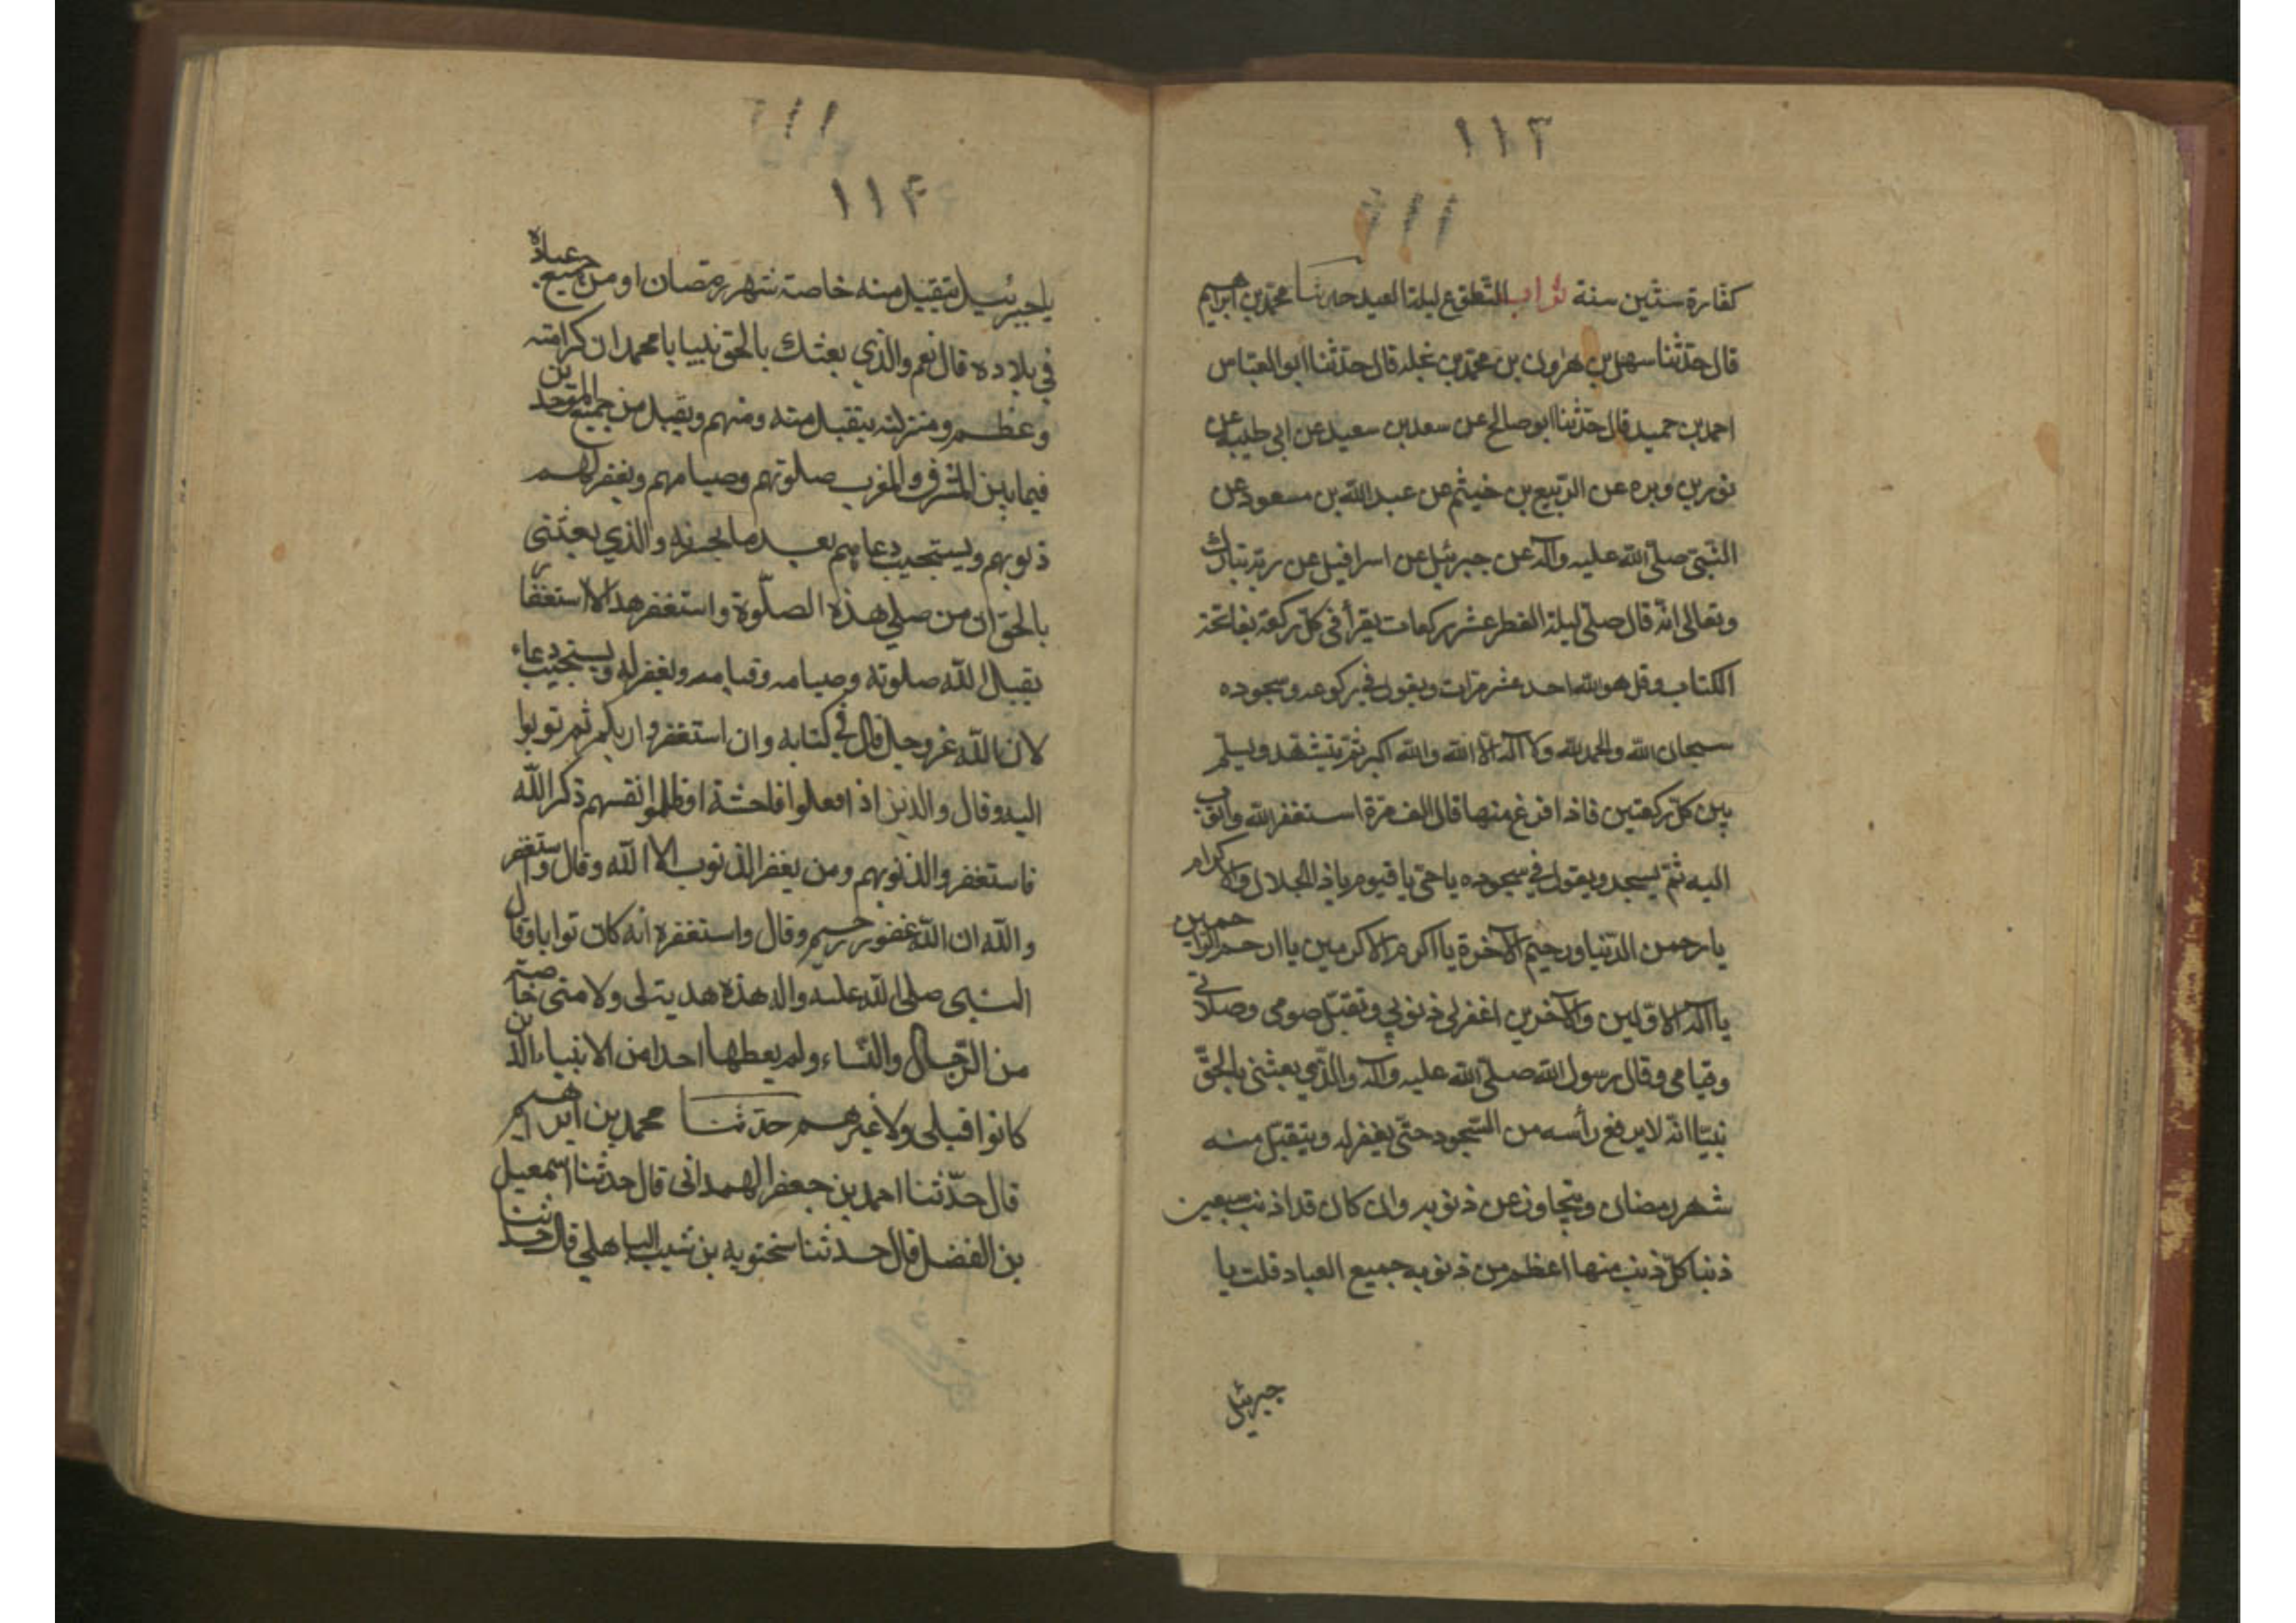 ١١٣
١١١
كفارة ستين سنة ثواب التطوع ليلة العيد حدثنا محمد بن ابراهيم
قال حدثنا سهل بن هرون بن محمد بن غيله قال حدثنا ابو العباس
احمد بن حميد قال حدثنا ابو صالح عن سعد بن سعيد عن ابي طيبه عن
نور بن وبره عن الربيع بن خيثم عن عبد الله بن مسعود عن
النبي صلى الله عليه وآله عن جبرئيل عن اسرافيل عن ربه تبارك
وتعالى انه قال صلى ليلة الفطر عشر ركعات يقرأ في كل ركعة بفاتحة
الكتاب وقل هو الله احد عشر مرات ويقول في ركوعه وسجوده
سبحان الله والحمد لله ولا آله الا الله والله اكبر ثم يتشهد ويسلم
بين كل ركعتين فاذا فرغ منها قال الف مرة استغفر الله واتوب
اليه ثم يسجد ويقول في سجوده يا حي يا قيوم يا ذا الجلال والاكرام
يا رحمن الدنيا ورحيم الآخرة يا اكرم الاكرمين يا ارحم الراحمين
يا اله الاولين والآخرين اغفر لي ذنوبي وتقبل صومي وصلاتي
وقيامي وقال رسول الله صلى الله عليه وآله والذي بعثني بالحق
نبيا انه لا يرفع رأسه من السجود حتى يغفر له ويتقبل منه
شهر رمضان ويتجاوز عن ذنوبه وان كان قد اذنب سبعين
ذنبا كل ذنب منها اعظم من ذنوب جميع العباد قلت يا
جبرئيل
١١١
١١۴
يا جبرئيل يتقبل منه خاصة شهر رمضان او من جميع عباده
في بلاده قال نعم والذي بعثك بالحق نبيا يا محمد ان كرامته
وعظم ومنزلته يتقبل منه ومنهم ويقبل من جميع الموحدين
فيما بين المشرق والمغرب صلوتهم وصيامهم ويغفر لهم
ذنوبهم ويستجيب دعاهم بعد ما والذي بعثنى
بالحق ان من صلى هذه الصلوة واستغفر هذا الاستغفار
يقبل الله صلوته وصيامه وقيامه ويغفر له ويستجيب دعاء
لان الله عز وجل قال في كتابه وان استغفروا ربكم ثم توبوا
اليه وقال والذين اذا فعلوا فاحشة او ظلموا انفسهم ذكر الله
فاستغفروا لذنوبهم ومن يغفر الذنوب الا الله وقال واستغفر
والله ان الله غفور رحيم وقال واستغفره انه كان توابا وقال
النبى صلى الله عليه واله هذه هدية لى ولامتى خاصة
من الرجال والنساء ولم يعطها احدا من الانبياء الذين
كانوا قبلى ولا غيرهم حدثنا محمد بن ابراهيم
قال حدثنا احمد بن جعفر الهمدانى قال حدثنا اسمعيل
بن الفضل قال حدثنا سختويه بن شبيب الباهلي قال حدثنا